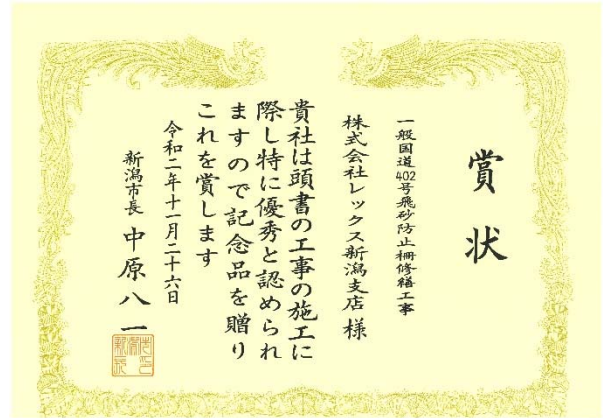 賞状
一般国道402号飛砂防止柵修繕工事
株式会社レックス新潟支店 様
貴社は頭書の工事の施工に
際し特に優秀と認められ
ますので記念品を贈り
これを賞します
令和二年十一月二十六日
新潟市長 中原八一